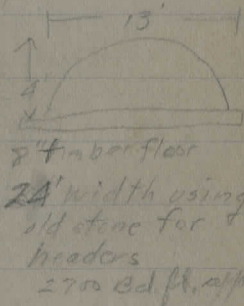 13'
4'
8" timber floor
24' width using
old stone for
headers
2700 Bd. ft.